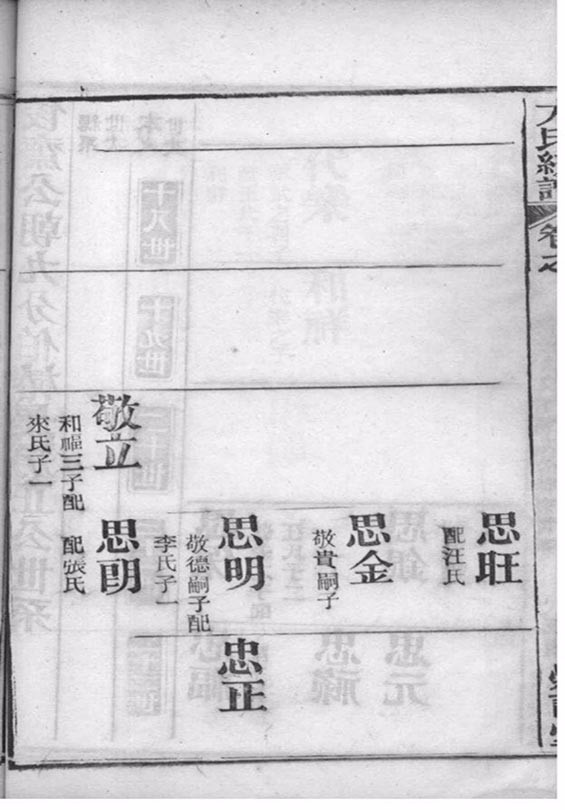 卷之
思旺
配汪氏
思金
敬貴嗣子
思明
敬德嗣子配
李氏子一
忠正
敬立
和福三子配
來氏子一
思朗
配張氏